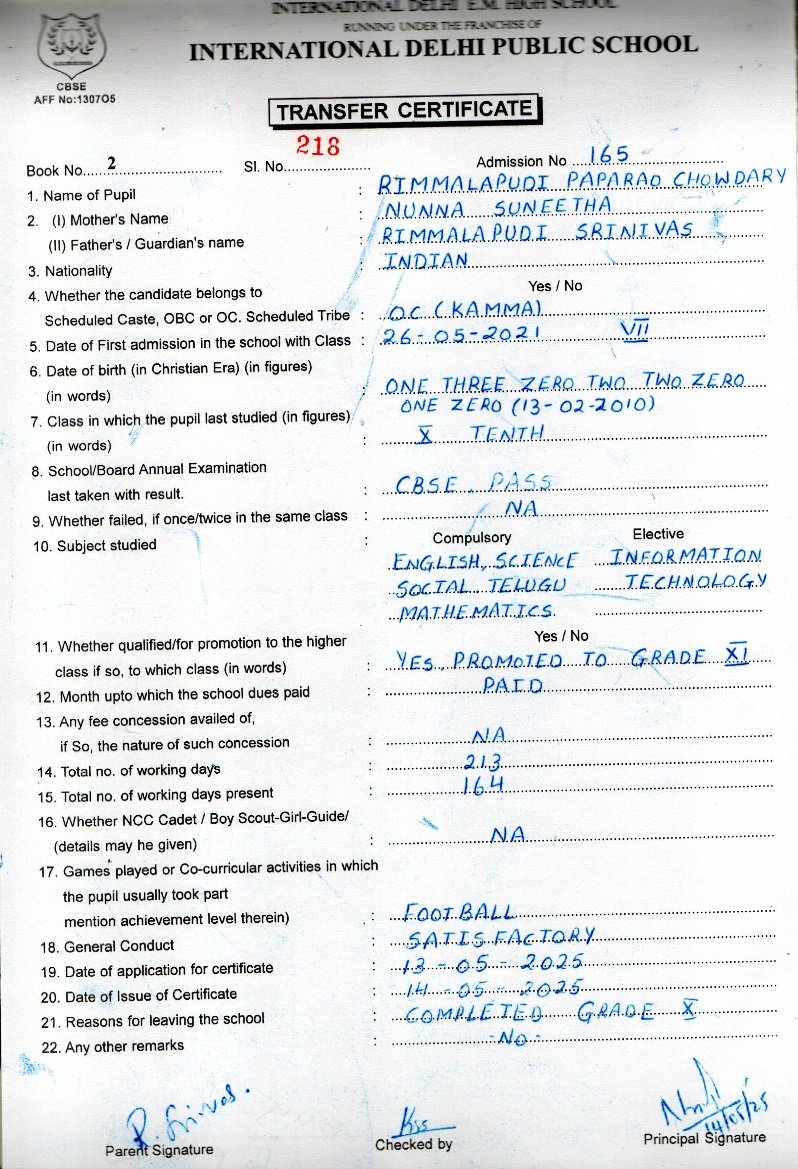 INTERNATIONAL DELHI E.M. HIGH SCHOOL
RUNNING UNDER THE FRANCHISE OF
INTERNATIONAL DELHI PUBLIC SCHOOL
CBSE
AFF No:130705
TRANSFER CERTIFICATE
Book No. 2 Sl. No. 218 Admission No 165
1. Name of Pupil : RIMMALAPUDI PAPARAO CHOWDARY
2. (I) Mother's Name : NUNNA SUNEETHA
(II) Father's / Guardian's name : RIMMALAPUDI SRINIVAS
3. Nationality : INDIAN
4. Whether the candidate belongs to Yes / No
Scheduled Caste, OBC or OC. Scheduled Tribe : OC (KAMMA)
5. Date of First admission in the school with Class : 26-05-2021 VII
6. Date of birth (in Christian Era) (in figures)
(in words) : ONE THREE ZERO TWO TWO ZERO
ONE ZERO (13-02-2010)
7. Class in which the pupil last studied (in figures)
(in words) : X TENTH
8. School/Board Annual Examination
last taken with result. : CBSE, PASS
9. Whether failed, if once/twice in the same class : NA
10. Subject studied : Compulsory Elective
ENGLISH, SCIENCE INFORMATION
SOCIAL, TELUGU TECHNOLOGY
MATHEMATICS.
11. Whether qualified/for promotion to the higher Yes / No
class if so, to which class (in words) : YES, PROMOTED TO GRADE XI
12. Month upto which the school dues paid : PAID
13. Any fee concession availed of,
if So, the nature of such concession : NA
14. Total no. of working days : 213
15. Total no. of working days present : 164
16. Whether NCC Cadet / Boy Scout-Girl-Guide/
(details may he given) : NA
17. Games played or Co-curricular activities in which
the pupil usually took part
mention achievement level therein) : FOOTBALL
18. General Conduct : SATISFACTORY
19. Date of application for certificate : 13-05-2025
20. Date of Issue of Certificate : 14-05-2025
21. Reasons for leaving the school : COMPLETED GRADE X
22. Any other remarks : -No-
14/05/25
Parent Signature Checked by Principal Signature